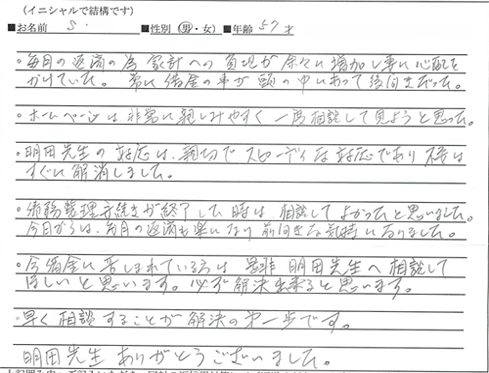 (イニシャルで結構です)
■お名前 S. ■性別 (男・女) ■年齢 57才
・毎月の返済の為 家計への負担が 余々に増加し妻に心配を
かけていた。 常に借金の事が頭の中にあって後向きだった。
・ホームページは非常に親しみやすく 一度相談して見ようと思った。
・明田先生の対応は、親切でスピーディな対応であり 不安は
すぐに解消しました。
・債務整理手続きが終了した時は、相談してよかったと思いました。
今日からは、毎月の返済も楽になり 前向きな気持になりました。
・今借金に苦しまれている方は 是非 明田先生へ相談して
ほしいと思います。必ず解決出来ると思います。
・早く相談することが解決の第一歩です。
明田先生 ありがとうございました。